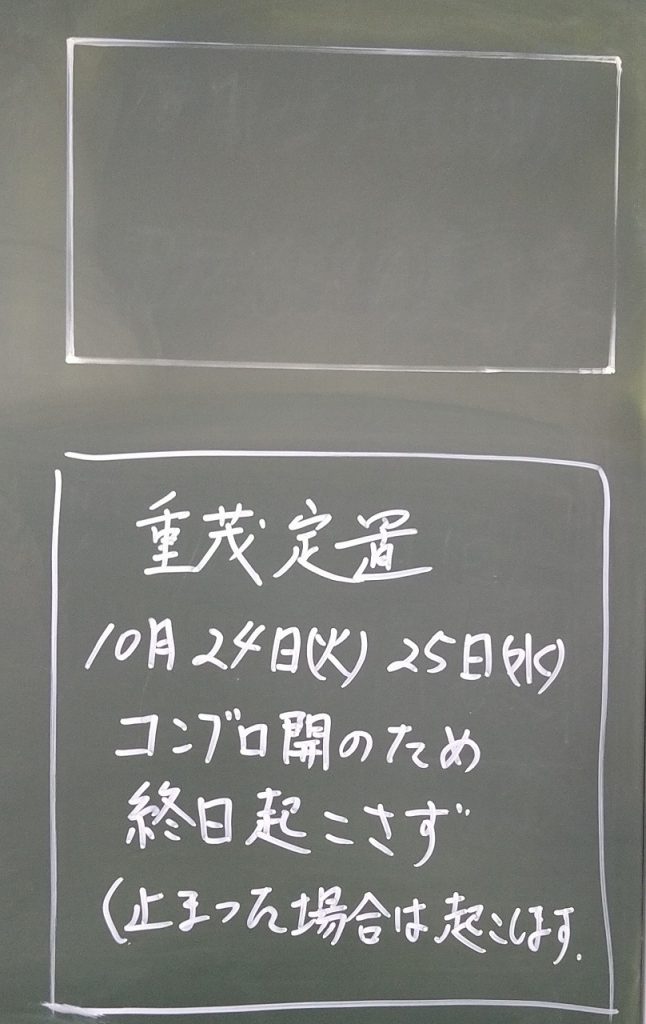 重茂定置
10月24日(火) 25日(水)
コンブロ開のため
終日起こさず
(止まった場合は起こします.